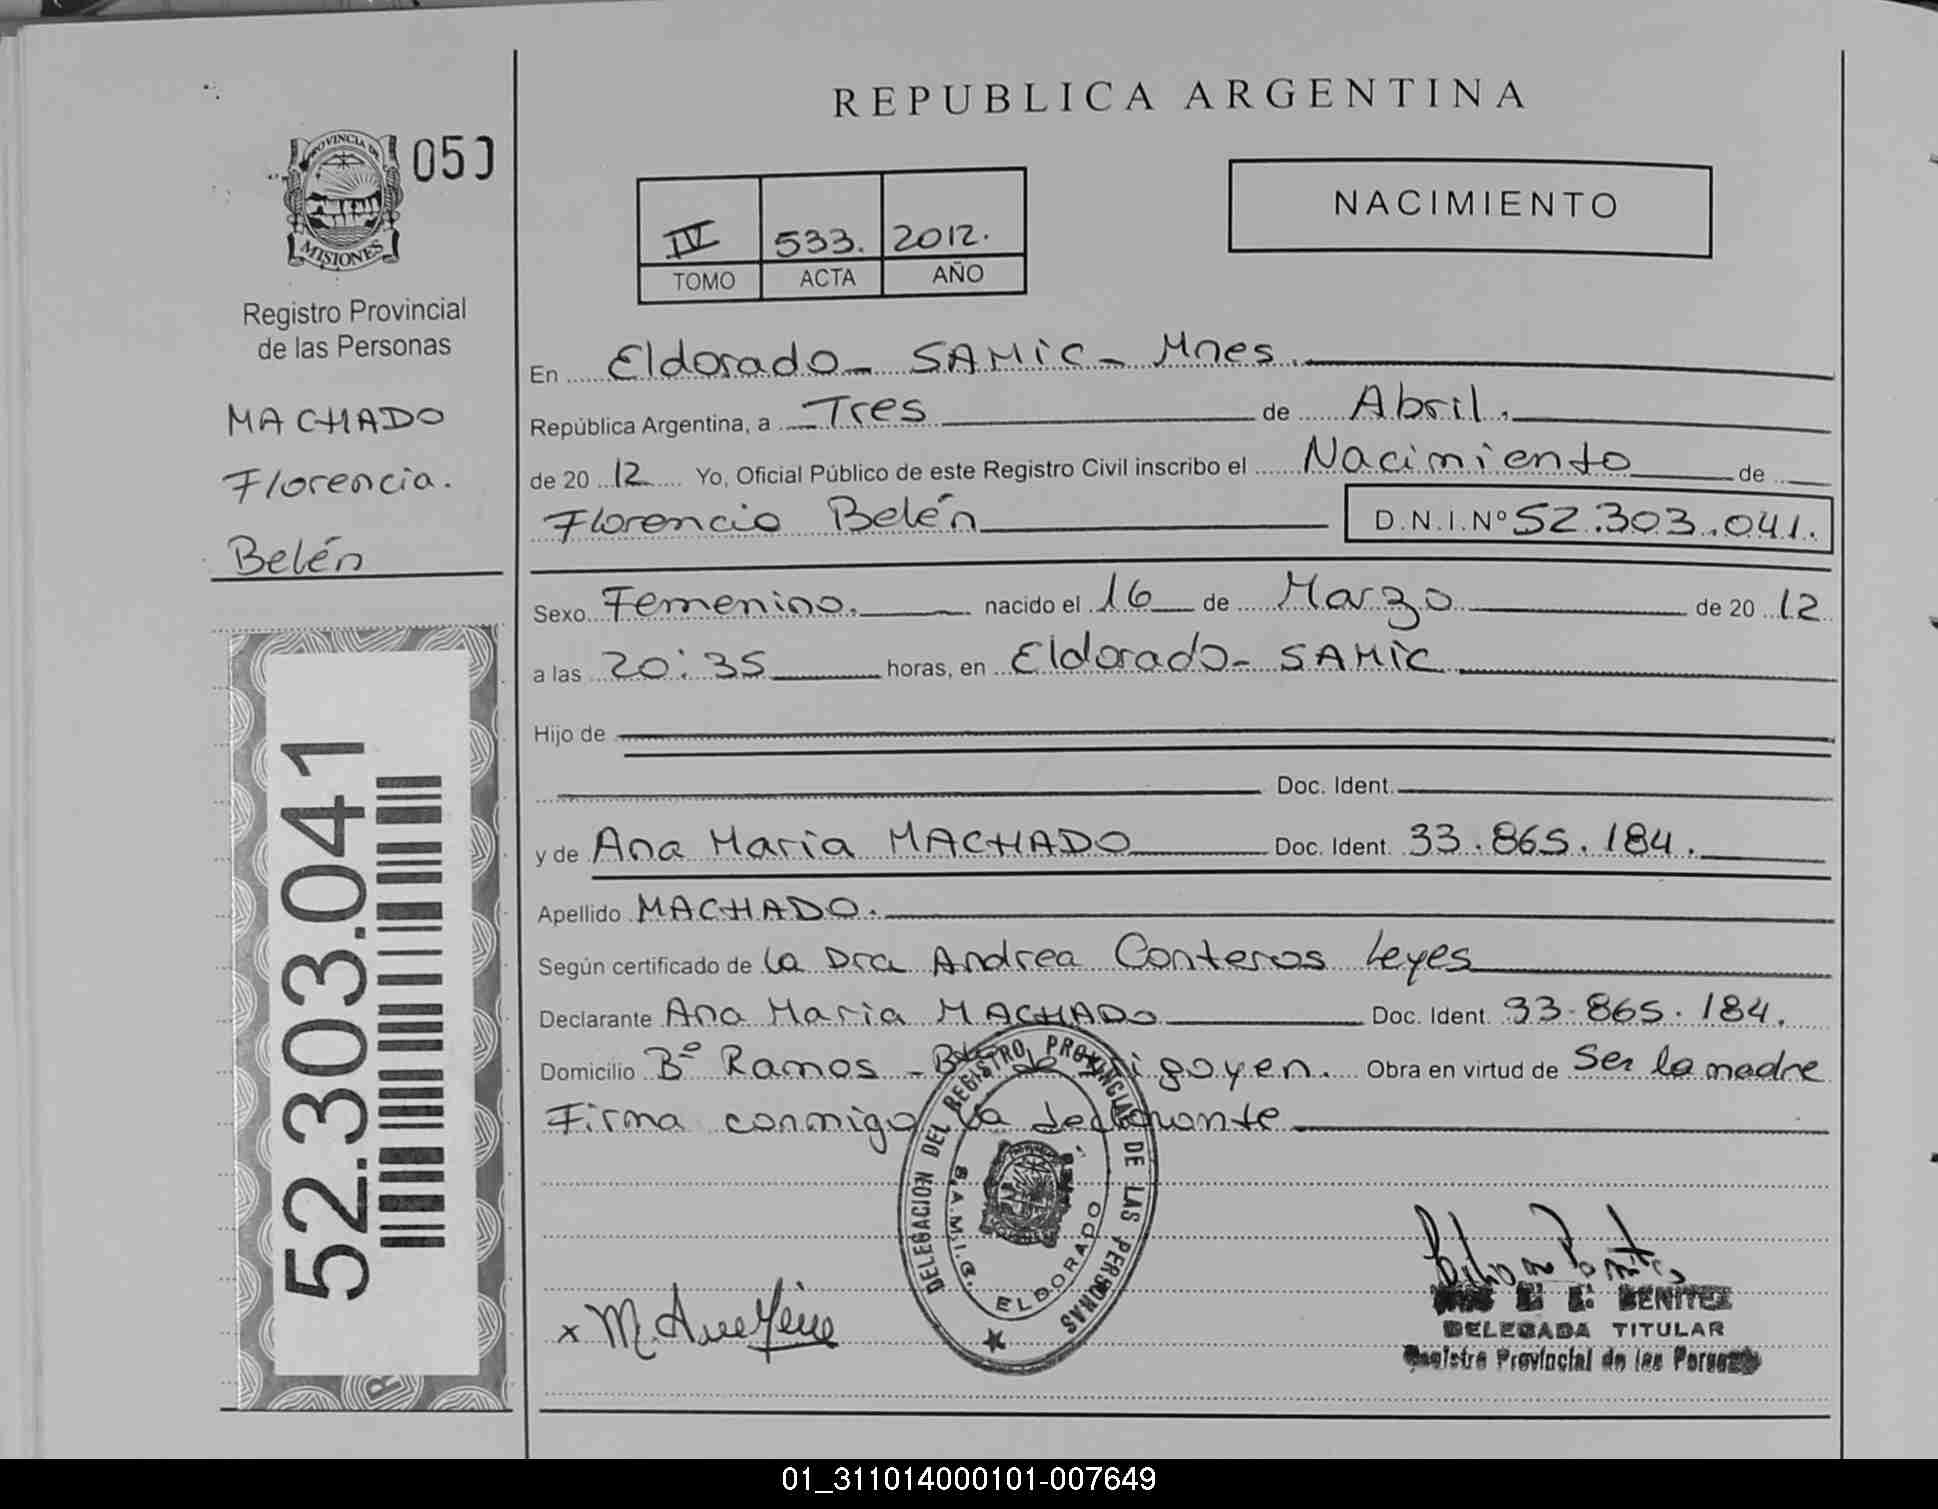 REPUBLICA ARGENTINA
PROVINCIA DE
MISIONES
05
Registro Provincial
de las Personas
MACHADO
Florencia.
Belén
52.303.041
IV 533. 2012.
TOMO ACTA AÑO
NACIMIENTO
En Eldorado - SAMIC - Mnes.
República Argentina, a Tres de Abril.
de 20 12 Yo, Oficial Público de este Registro Civil inscribo el Nacimiento de
Florencia Belén D.N.I.Nº 52.303.041.
Sexo Femenino. nacido el 16 de Marzo de 20 12
a las 20:35 horas, en Eldorado - SAMIC
Hijo de
Doc. Ident.
y de Ana Maria MACHADO Doc. Ident. 33.865.184.
Apellido MACHADO.
Según certificado de la Dra Andrea Conteros Leyes
Declarante Ana Maria MACHADO Doc. Ident. 33.865.184.
Domicilio Bº Ramos - de Irigoyen. Obra en virtud de Ser la madre
Firma conmigo la declarante
DELEGACION DEL REGISTRO PROVINCIAL DE LAS PERSONAS
S.A.M.I.C.
ELDORADO
x
BENITEZ
DELEGADA TITULAR
Registro Provincial de las Personas
01_311014000101-007649